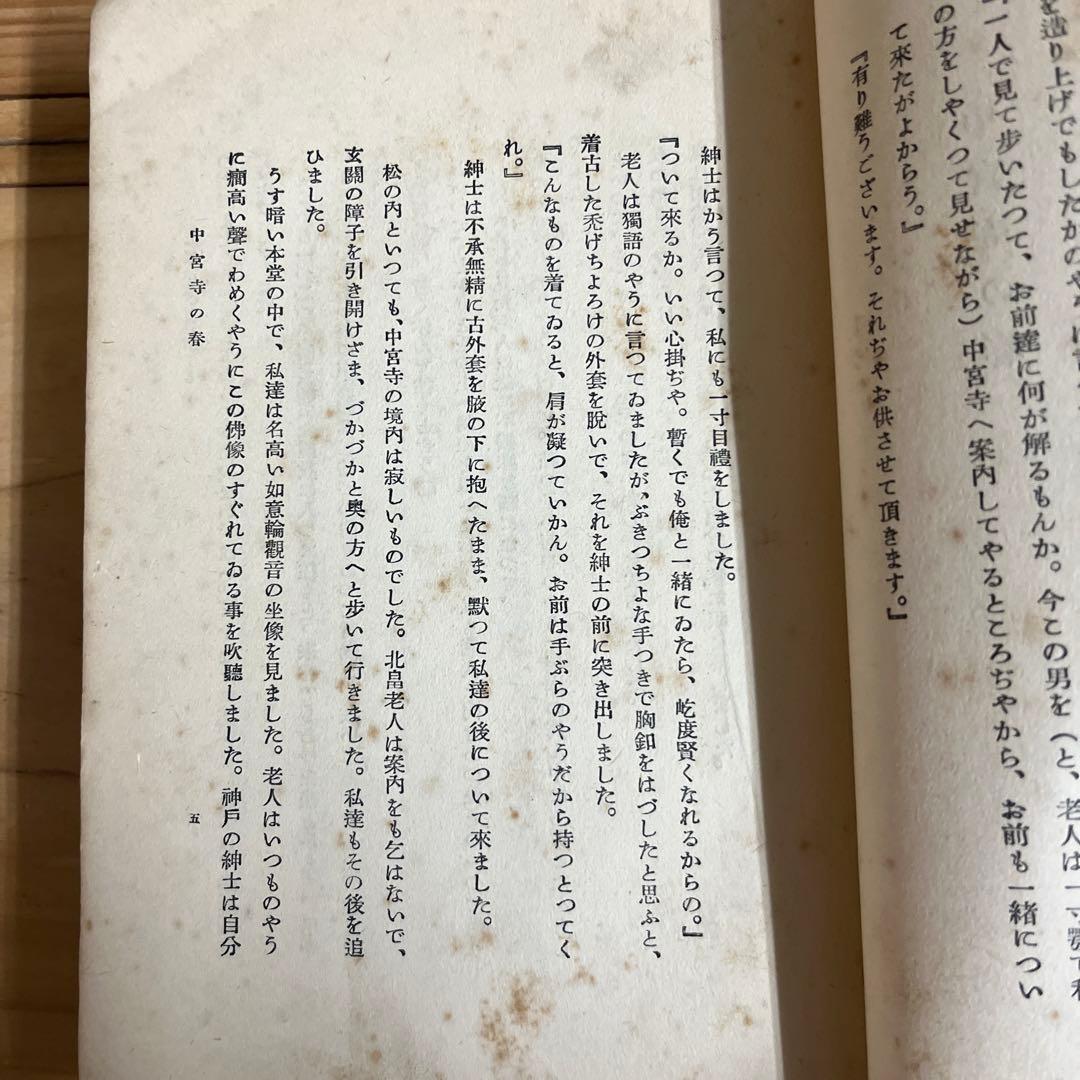 を造り上げでもしたかのやうに
一人で見て歩いたつて、お前達に何が解るもんか。今この男を(と、老人は一寸顎で私
の方をしやくつて見せながら)中宮寺へ案内してやるところぢやから、お前も一緒につい
て來たがよからう。』
『有り難うございます。それぢやお供させて頂きます。』
紳士はかう言つて、私にも一寸目禮をしました。
『ついて來るか。いい心掛ぢや。暫くでも俺と一緒にゐたら、屹度賢くなれるからの。』
老人は獨語のやうに言つてゐましたが、ぶきつちよな手つきで胸釦をはづしたと思ふと、
着古した禿げちよろけの外套を脱いで、それを紳士の前に突き出しました。
『こんなものを着てゐると、肩が凝つていかん。お前は手ぶらのやうだから持つとつてく
れ。』
紳士は不承無精に古外套を腋の下に抱へたまま、默つて私達の後について來ました。
松の内といつても、中宮寺の境内は寂しいものでした。北畠老人は案内をも乞はないで、
玄關の障子を引き開けざま、づかづかと奥の方へと歩いて行きました。私達もその後を追
ひました。
うす暗い本堂の中で、私達は名高い如意輪觀音の坐像を見ました。老人はいつものやう
に癇高い聲でわめくやうにこの佛像のすぐれてゐる事を吹聽しました。神戸の紳士は自分
中宮寺の春
五